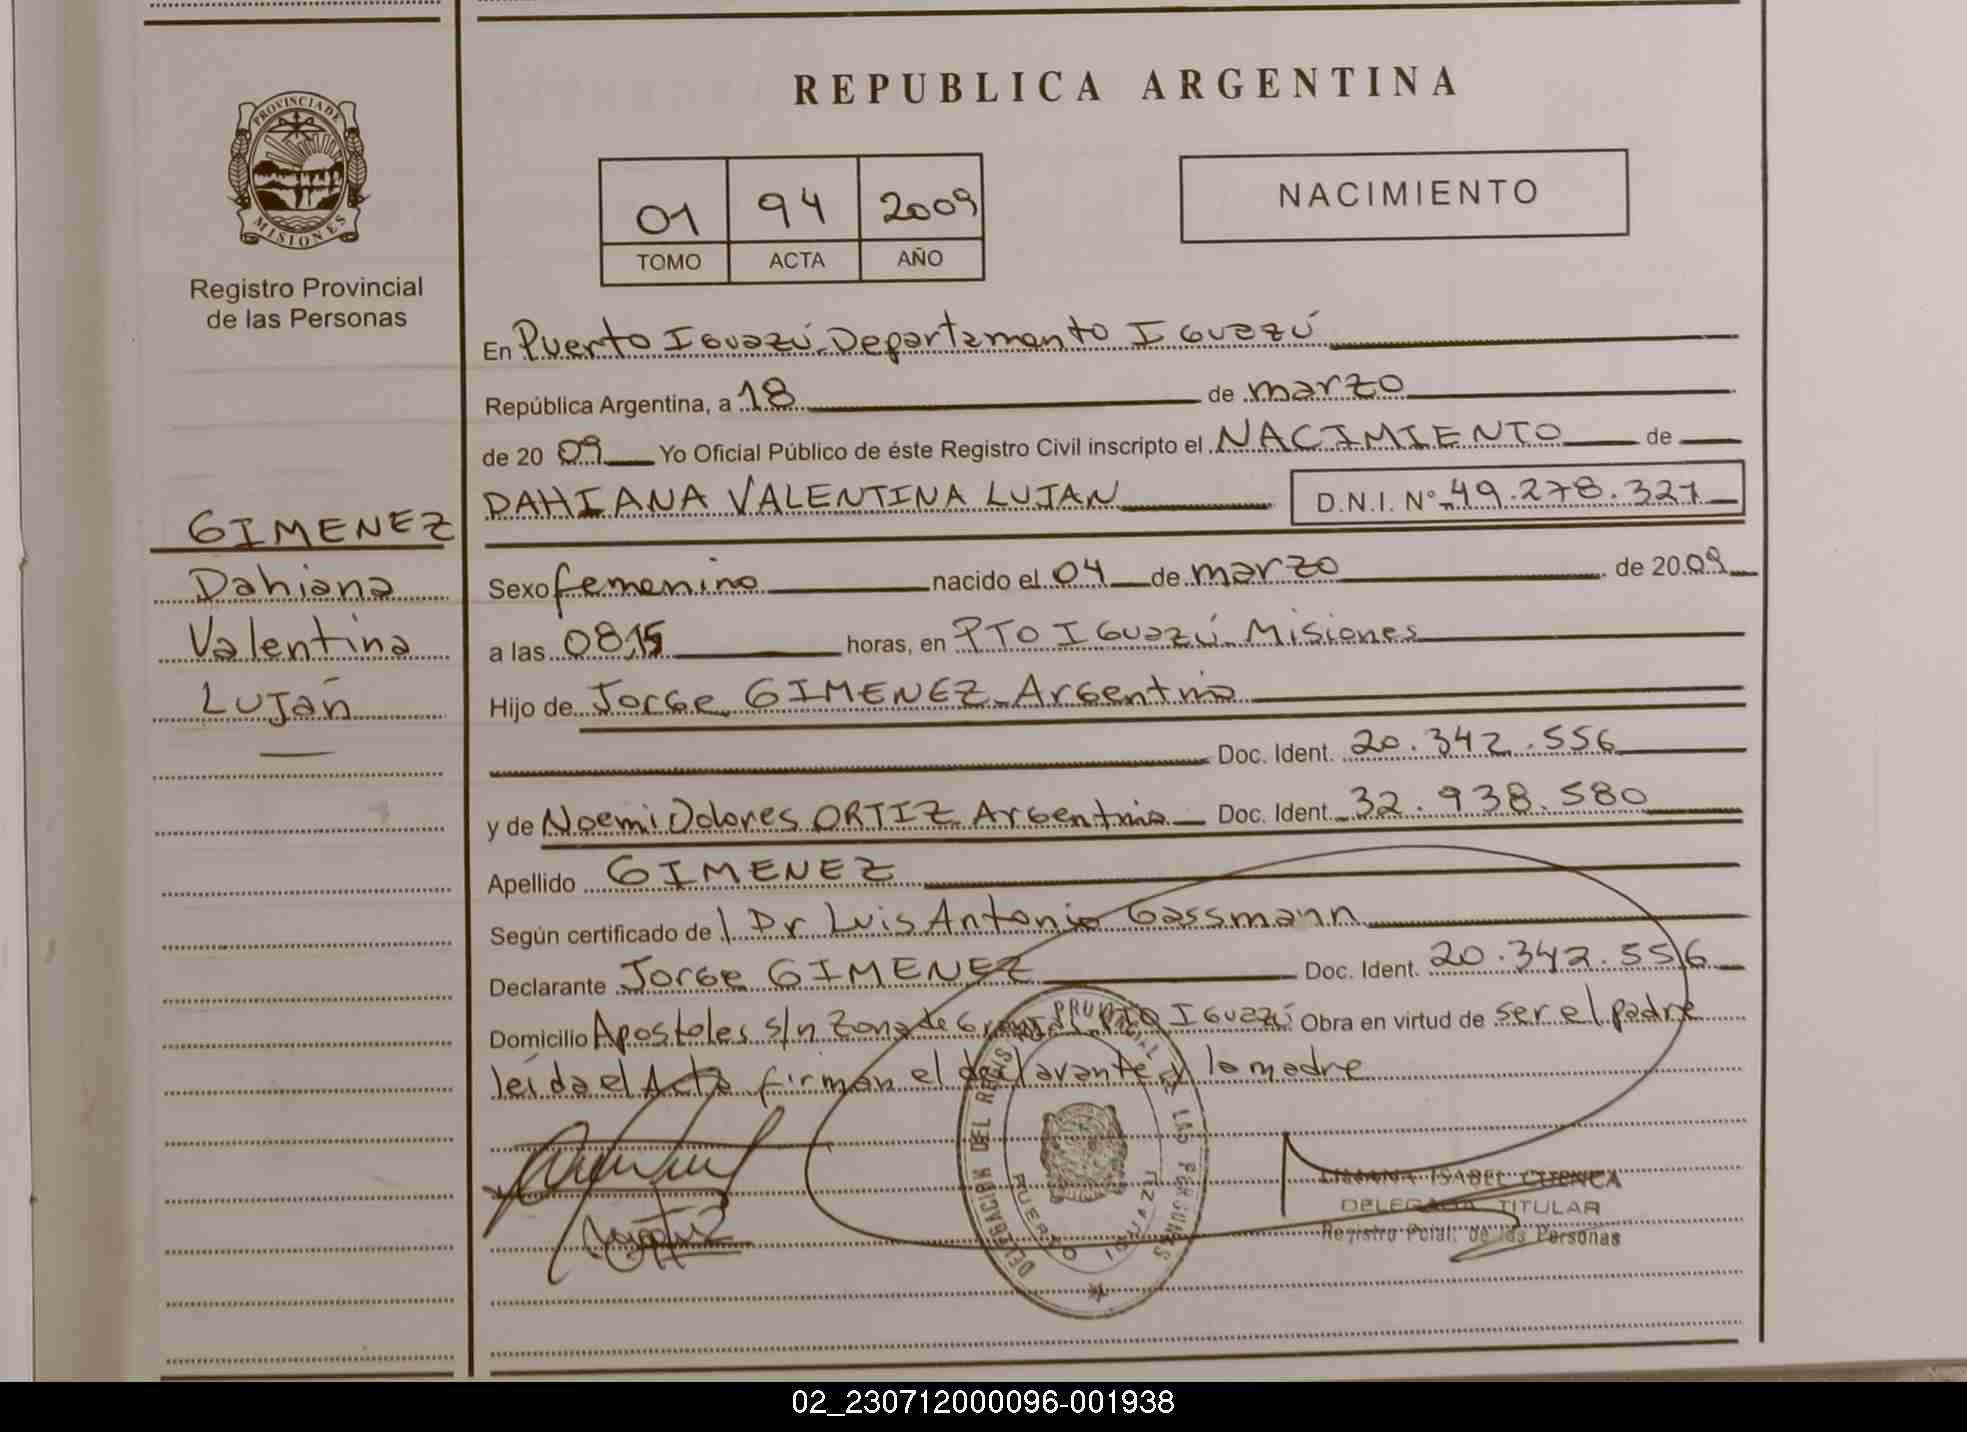 REPUBLICA ARGENTINA
PROVINCIA DE
MISIONES
Registro Provincial
de las Personas
01 94 2009
TOMO ACTA AÑO
NACIMIENTO
En Puerto Iguazú. Departamento Iguazú
República Argentina, a 18 de marzo
de 20 09 Yo Oficial Público de éste Registro Civil inscripto el NACIMIENTO de
DAHIANA VALENTINA LUJAN D.N.I. Nº 49.278.321
GIMENEZ
Dahiana
Valentina
Luján
Sexo femenino nacido el 04 de marzo de 20 09
a las 08,15 horas, en PTO Iguazú. Misiones
Hijo de Jorge GIMENEZ. Argentina
Doc. Ident. 20.342.556
y de Noemi Dolores ORTIZ Argentina Doc. Ident. 32.938.580
Apellido GIMENEZ
Según certificado de l Dr Luis Antonio Gassmann
Declarante Jorge GIMENEZ Doc. Ident. 20.342.556
Domicilio Apostoles s/n Zona de PTO Iguazú Obra en virtud de ser el padre
leída el Acta firman el declarante y la madre
DELEGACION DEL LAS PERSONAS
PUERTO
LILIANA ISABEL CUENCA
DELEGADA TITULAR
Registro Pcial. de las Personas
02_230712000096-001938